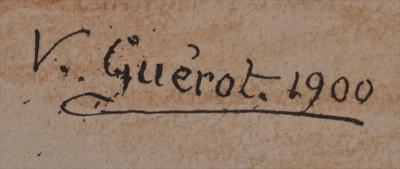 V. Guérot. 1900